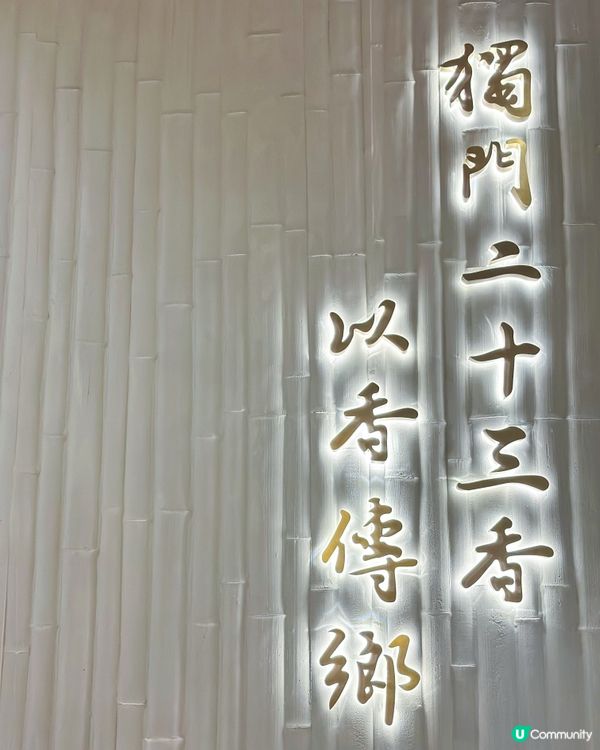 獨門二十三香
以香傳鄉
U Community